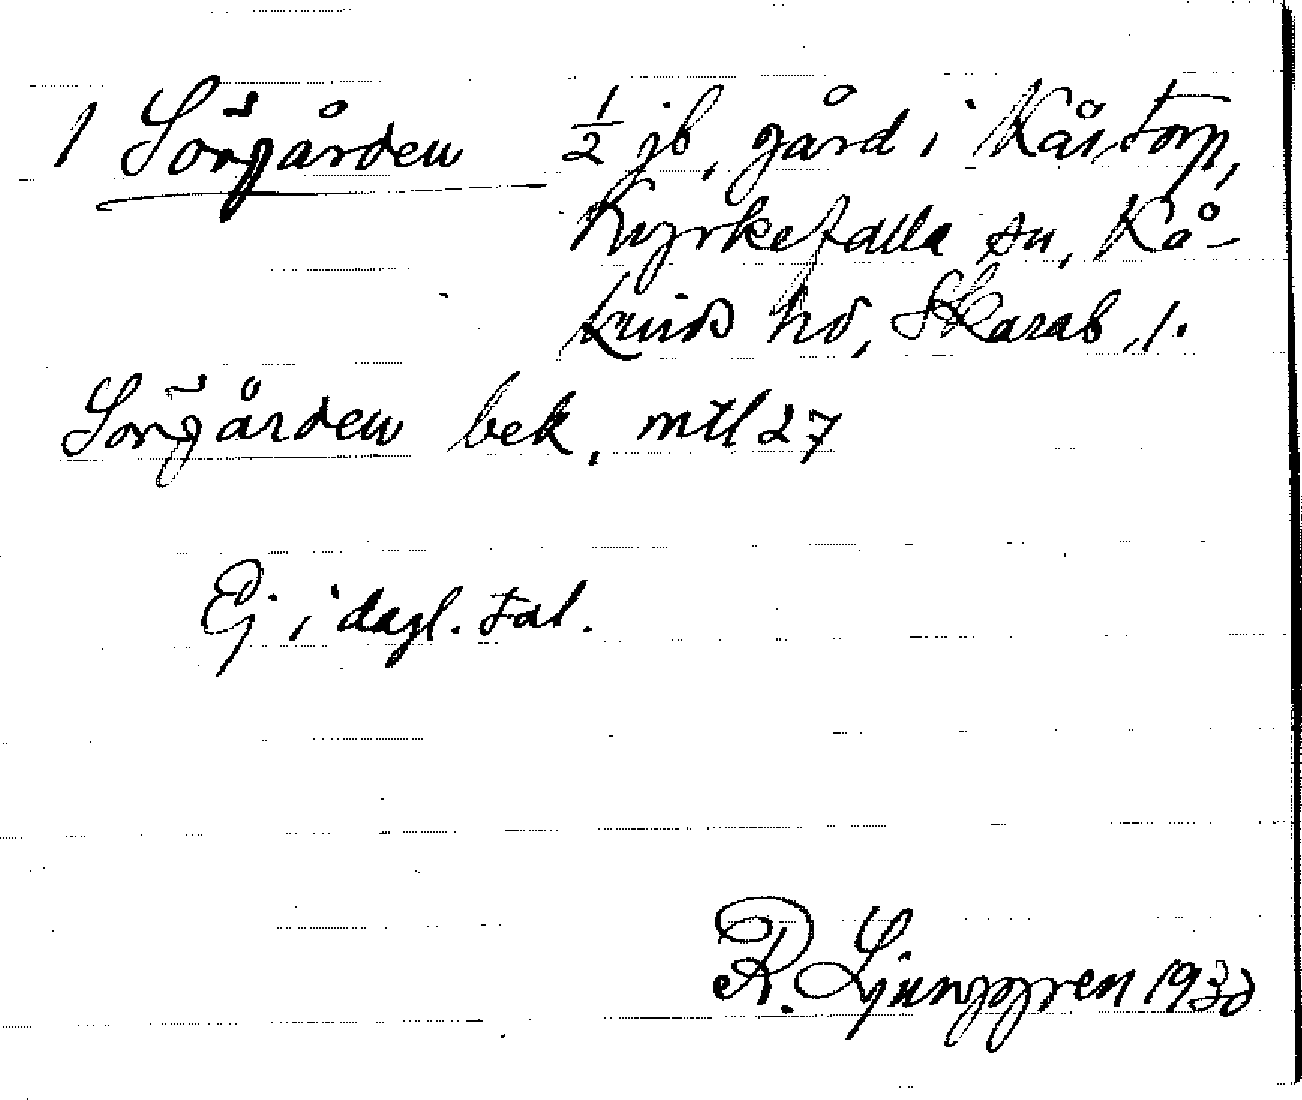 1 Sörgården ½ jb. gård i Kåstorp,
Kyrkefalla sn, Kå-
kinds hd, Skarab. l.
Sörgården bek. mtl 27
Ej i dagl. tal.
R. Ljunggren 1930